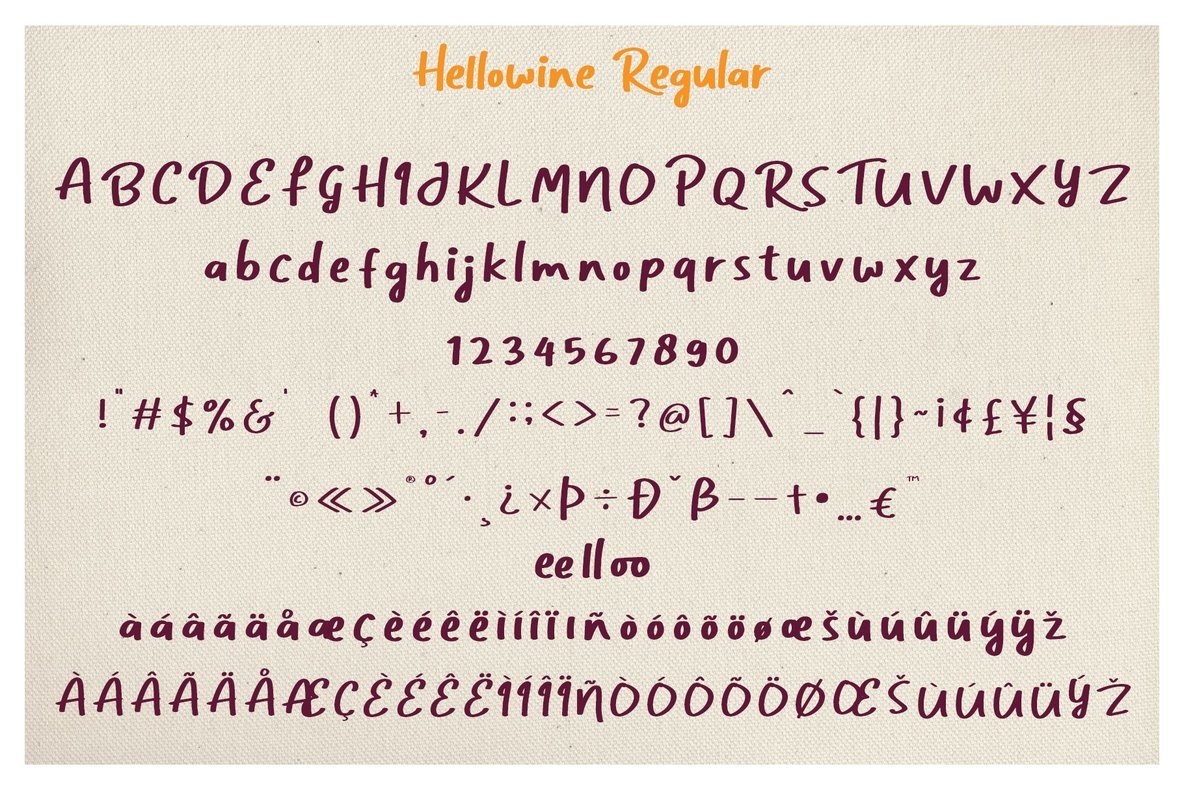 Hellowine Regular
ABCDEFGHIJKLMNOPQRSTUVWXYZ
abcdefghijklmnopqrstuvwxyz
1234567890
!"#$%&'()*+,-./:;<>=?@[]\^_`{|}~¡¢£¥¦§
¨©«»®°´·¸¿×Þ÷Ðˇß–—†•…€™
eelloo
àáâãäåæçèéêëìíîïıñòóôõöøœšùúûüýÿž
ÀÁÂÃÄÅÆÇÈÉÊËÌÍÎÏÑÒÓÔÕÖØŒŠÙÚÛÜÝŽ